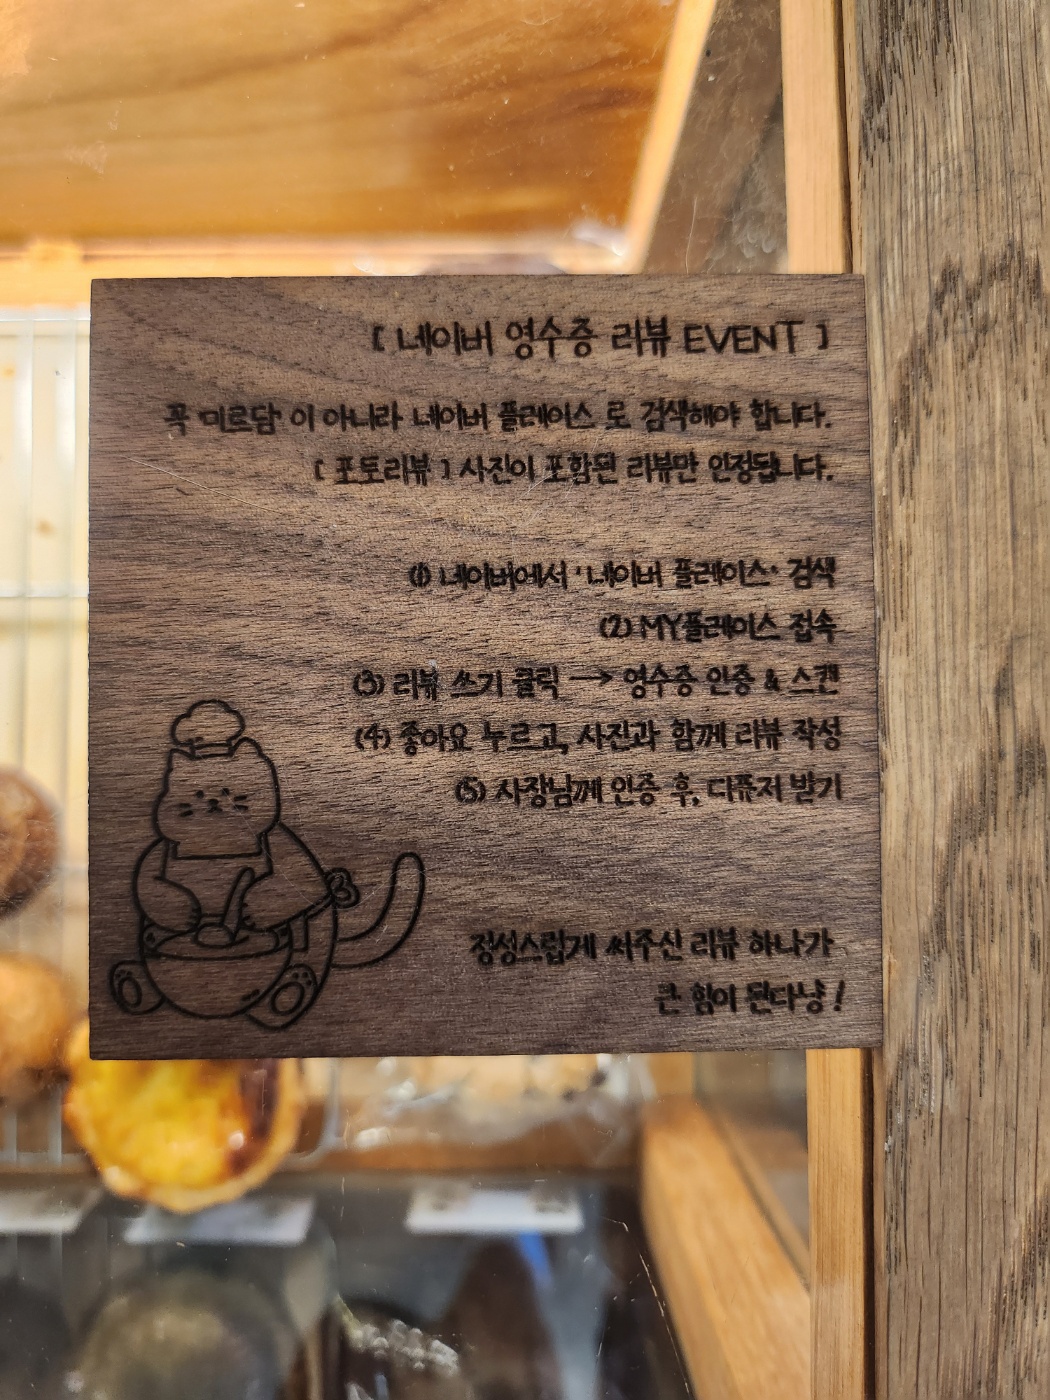 [ 네이버 영수증 리뷰 EVENT ]
꼭 미르담 이 아니라 네이버 플레이스 로 검색해야 합니다.
[ 포토리뷰 ] 사진이 포함된 리뷰만 인정됩니다.
(1) 네이버에서 '네이버 플레이스' 검색
(2) MY플레이스 접속
(3) 리뷰 쓰기 클릭 → 영수증 인증 & 스캔
(4) 좋아요 누르고, 사진과 함께 리뷰 작성
(5) 사장님께 인증 후, 디퓨저 받기
정성스럽게 써주신 리뷰 하나가
큰 힘이 된다냥!